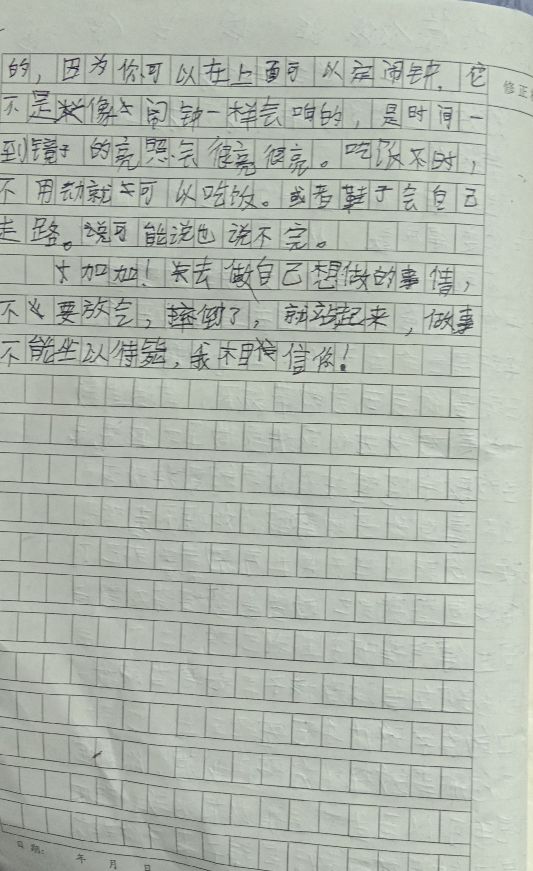 的，因为你可以在上面可以定闹钟，它
修正
不是像闹钟一样会响的，是时间一
到镜子的亮照会很亮很亮。吃饭不时，
不用动就可以吃饭。或者鞋子会自己
走路。说可能说也说不完。
加加！去做自己想做的事情，
不要放弃，摔倒了，就站起来，做事
不能坐以待毙，我相信你！
日期： 年 月 日